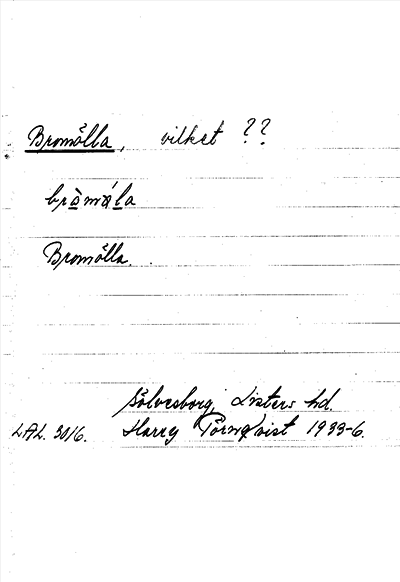 Bromölla, vilket ??
bròmǿla
Bromölla.
Sölvesborg Listers hd.
LAL. 3016. Harry Törnqvist 1933-6.